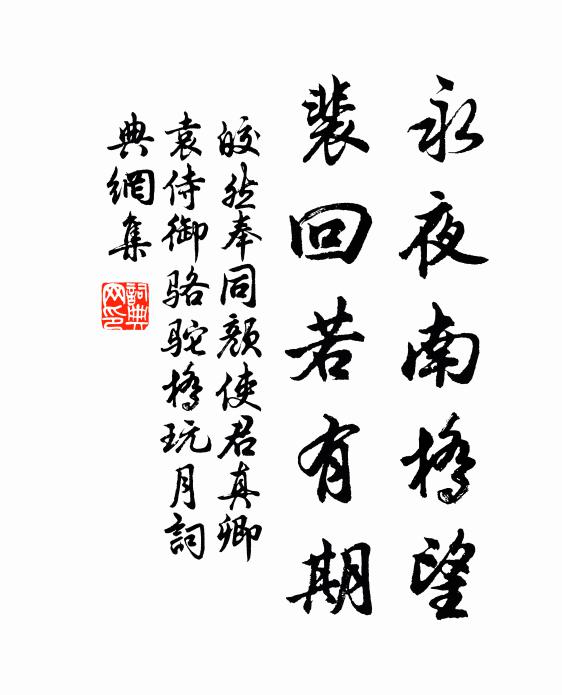 永夜南橋望
裴回若有期
皎然奉同顏使君真卿
袁侍御骆駝橋玩月詞
典網集
詞典网印